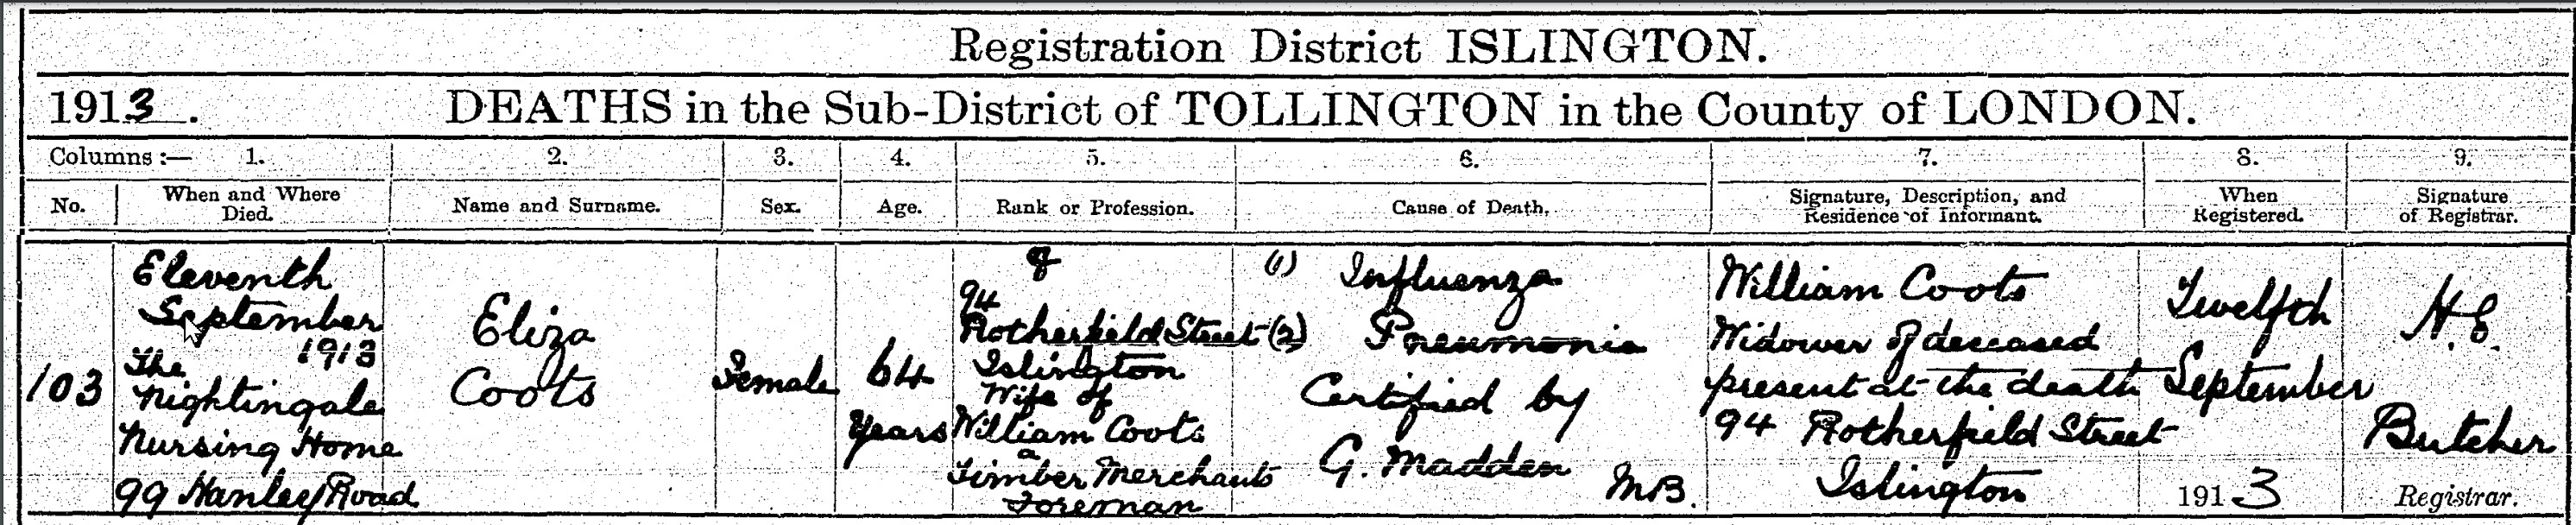 Registration District ISLINGTON.
1913. DEATHS in the Sub-District of TOLLINGTON in the County of LONDON.
Columns :— 1. 2. 3. 4. 5. 6. 7. 8. 9.
No. When and Where Died. Name and Surname. Sex. Age. Rank or Profession. Cause of Death. Signature, Description, and Residence of Informant. When Registered. Signature of Registrar.
103
Eleventh
September
1913
The
Nightingale
Nursing Home
99 Hanley Road
Eliza
Coots
Female
64
Years
of
94
Rotherfield Street
Islington
Wife of
William Coots
a
Timber Merchants
Foreman
(1) Influenza
(2) Pneumonia
Certified by
G. Madden
M.B.
William Coots
Widower of deceased
present at the death
94 Rotherfield Street
Islington
Twelfth
September
1913
H. E.
Butcher
Registrar.